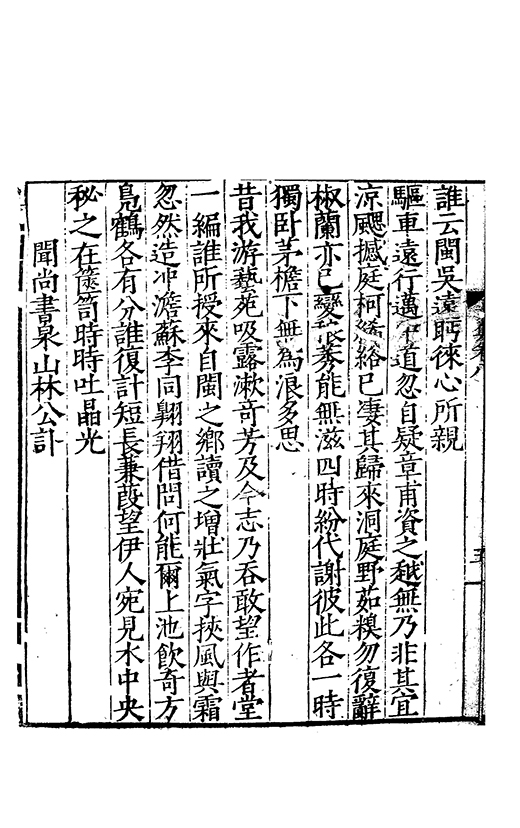 誰云閩吳遠眄徠心所親
驅車遠行邁中道忽自疑章甫資之越無乃非其宜
涼飃撼庭柯絺綌已淒其歸來洞庭野茹糗勿復辭
椒蘭亦已變菉葹能無滋四時紛代謝彼此各一時
獨卧茅檐下無為浪多思
昔我游藝苑吸露漱奇芳及今志乃吞敢望作者堂
一編誰所授來自閩之鄉讀之增壯氣字挾風與霜
忽然造冲澹蘇李同翱翔借問何能爾上池飲奇方
鳧鶴各有分誰復計短長蒹葭望伊人宛見水中央
秘之在篋笥時時吐晶光
聞尚書泉山林公訃
卷八
五